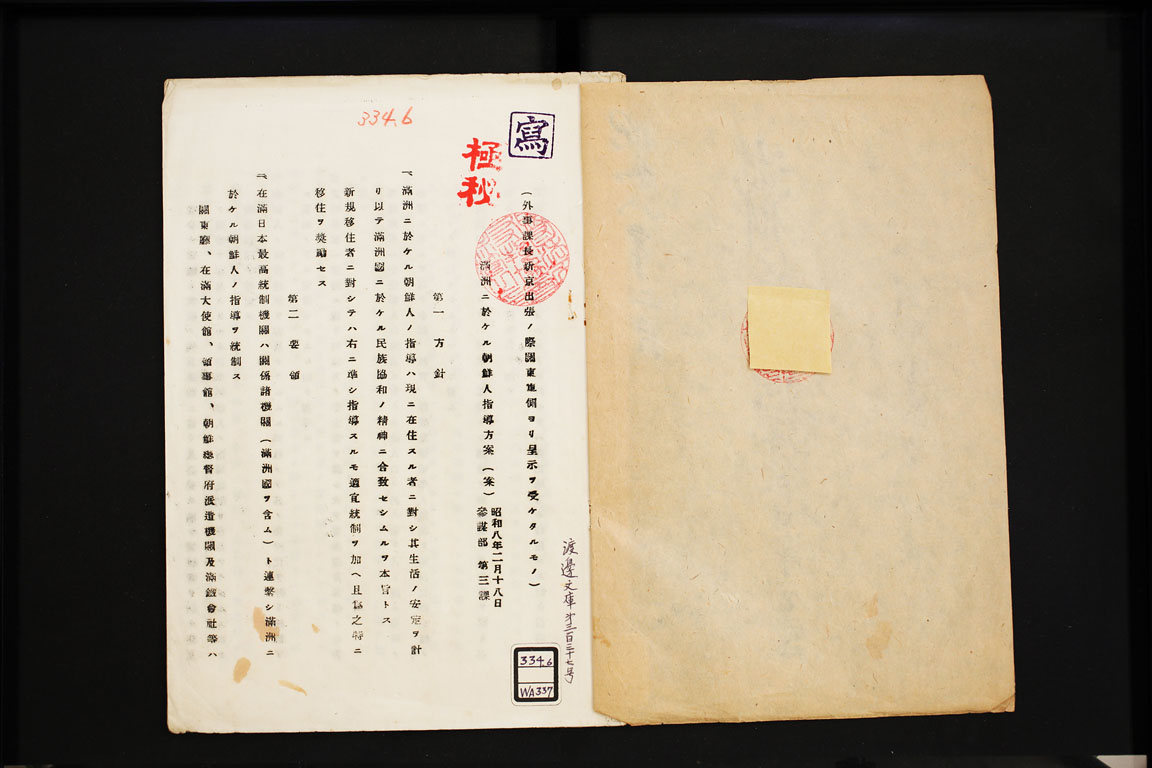 334.6
寫
極秘
(外事課長新京出張ノ際關東軍側ヨリ呈示ヲ受ケタルモノ)
滿洲ニ於ケル朝鮮人指導方案(案)
昭和八年二月十八日
參謀部 第三課
第一 方針
一、滿洲ニ於ケル朝鮮人ノ指導ハ現ニ在住スル者ニ對シ其生活ノ安定ヲ計
リ以テ滿洲國ニ於ケル民族協和ノ精神ニ合致セシムルヲ本旨トス
新規移住者ニ對シテハ右ニ準シ指導スルモ適宜統制ヲ加ヘ且爲之特ニ
移住ヲ獎勵セス
第二 要領
在滿日本最高統制機關ハ關係諸機關(滿洲國ヲ含ム)ト連繫シ滿洲ニ
於ケル朝鮮人ノ指導ヲ統制ス
關東廳、在滿大使館、領事館、朝鮮總督府派遣機關及滿鐵會社等ハ
渡邊文庫第三百三十七号
334.6
WA337